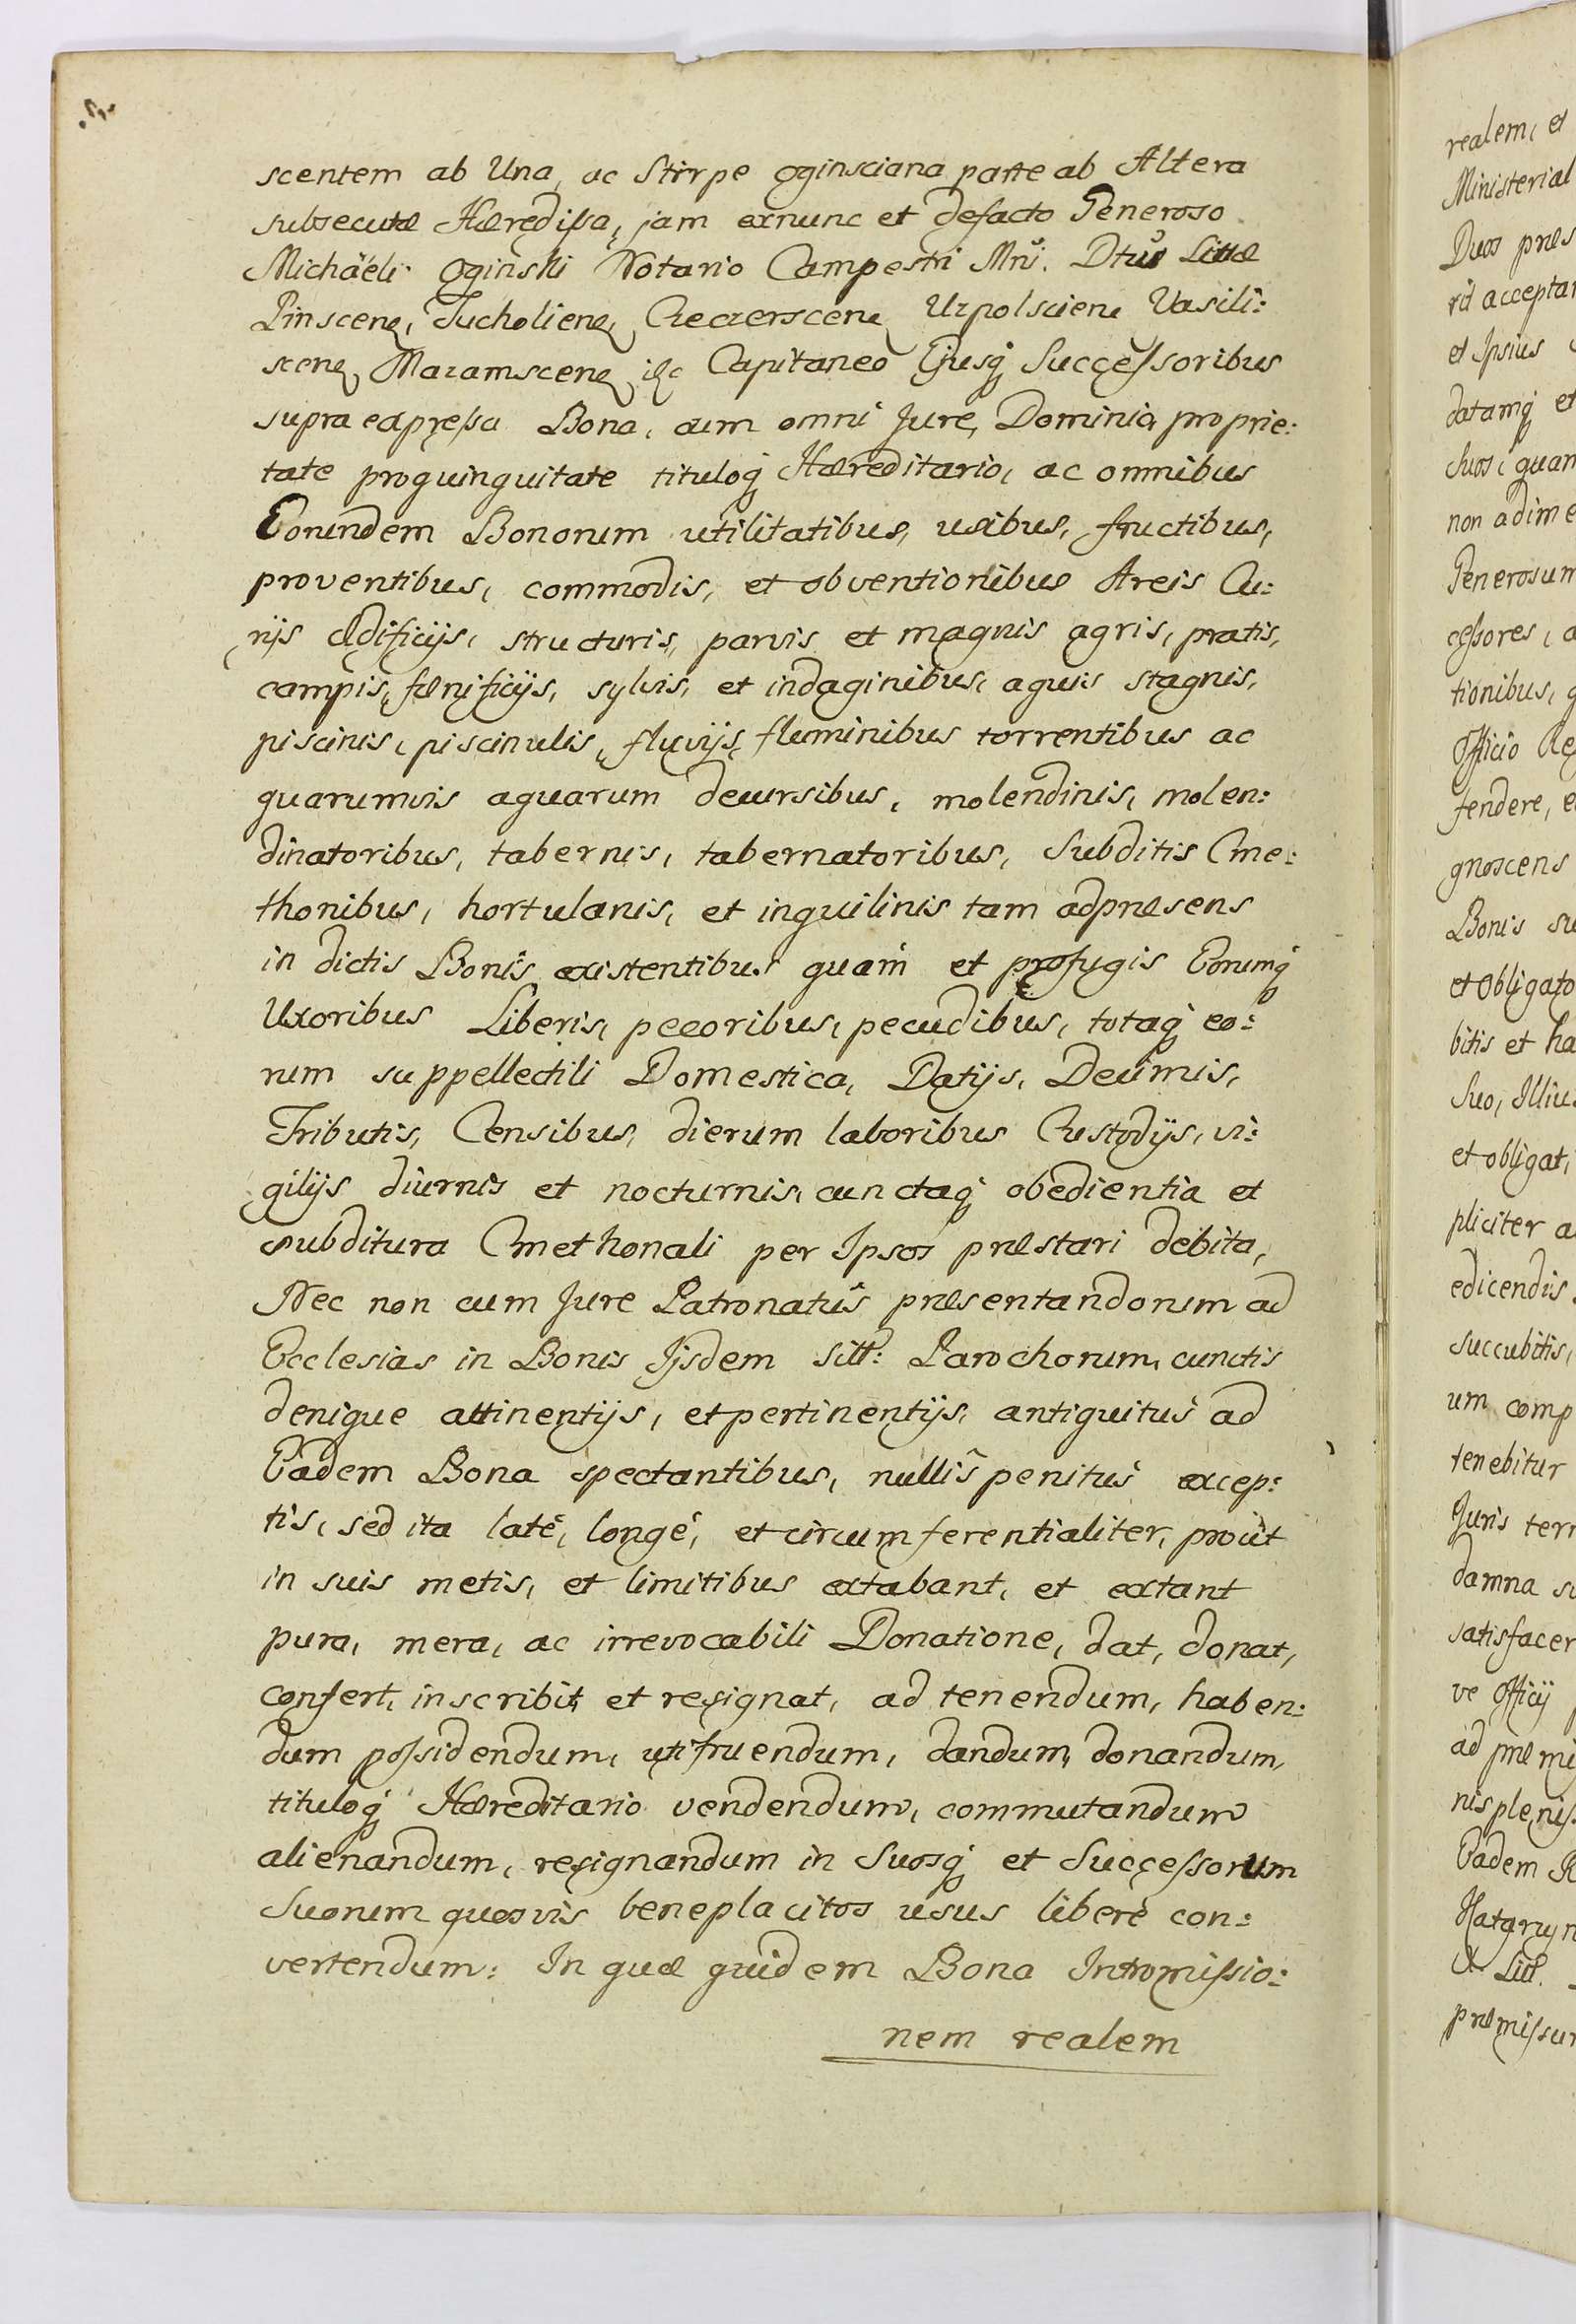 scentem ab Una, ac Stirpe Oginsciana parte ab Altera
subsecutæ Hæredissa, jam exnunc et defacto Generoso
Michäeli Oginski Notario Campestri Mni. Dtus Littæ
Pinscen, Tucholien, Uzpolscien Vasili:
scen, Capitaneo Ejusq Successoribus
supra expressa Bona, cum omni Jure, Dominio, proprie:
tate proquinquitate tituloq Hæreditario, ac omnibus
Eorundem Bonorum utilitatibus, usibus, fructibus,
proventibus, commodis, et obventionibus Areis Cu:
rijs Ædificijs, structuris, parvis et magnis agris, pratis,
campis, fænificijs, sylvis, et indaginibus, aquis stagnis,
piscinis, piscinulis, fluvijs, fluminibus torrentibus ac
quarumvis aquarum decursibus, molendinis, molen:
dinatoribus, tabernis, tabernatoribus, Subditis Cme:
thonibus, hortulanis, et inquilinis tam adpræsens
in dictis Bonis existentibus quam et profugis Eorumq
Uxoribus Liberis, pecoribus, pecudibus, totaq eo:
rum suppellectili Domestica, Datijs, Decimis,
Tributis, Censibus, dierum laboribus Custodijs, vi:
gilijs diurnis et nocturnis, cunctaq obedientia et
subditura Cmethonali per Ipsos præstari debita,
Nec non cum Jure Patronatûs præsentandorum ad
Ecclesias in Bonis Ijsdem sitt: Parochorum, cunctis
denique attinentijs, et pertinentijs, antiquitus ad
Eadem Bona spectantibus, nullis penitus excep:
tis, sed ita latè, longè, et circumferentialiter, proùt
in suis metis, et limitibus extabant, et extant
pura, mera, ac irrevocabili Donatione, dat, donat,
confert, inscribit et resignat, ad tenendum, haben:
dum possidendum, utifruendum, dandum, donandum,
tituloq Hæreditario vendendum, commutandum
alienandum, resignandum in Suosq et Successorum
Suorum quosvis beneplacitos usus liberè con:
vertendum: In quæ quidem Bona Intromissio:
nem realem
realem, et
Ministerial
Duos præs
rit acceptar
et Ipsius
datamq et
Suos, quam
non adime
Generosum
cessores, a
tionibus, q
Officio Re
fendere, e
gnoscens
Bonis su
et Obligato
bitis et ha
Suo, Illiu
et obligat,
pliciter a
edicendis
succubitis,
um comp
tenebitur
Juris ter
damna su
satisfacer
ve Officij
ad præmi
nis pleniss
Eadem
Hataryn

præmissu